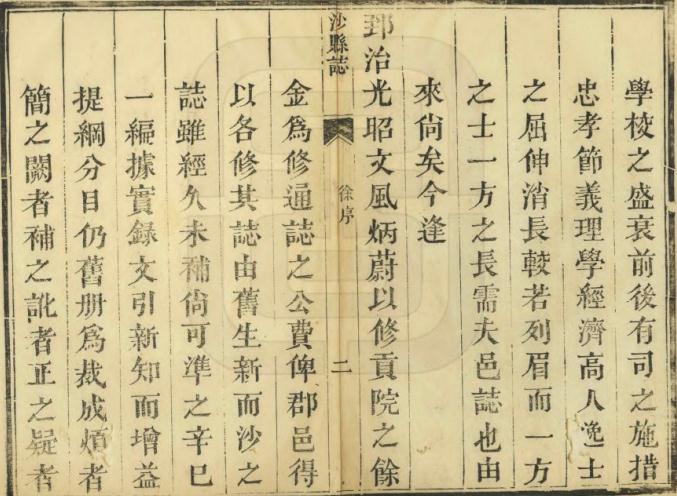 學校之盛衰前後有司之施措
忠孝節義理學經濟高人逸士
之屈伸消長較若列眉而一方
之士一方之長需夫邑誌也由
來尚矣今逢
郅治光昭文風炳蔚以修貢院之餘
沙縣誌
徐序
二
金爲修通誌之公費俾郡邑得
以各修其誌由舊生新而沙之
誌雖經久未補尚可準之辛巳
一編據實録文引新知而增益
提綱分目仍舊册爲裁成煩者
簡之闕者補之訛者正之疑者